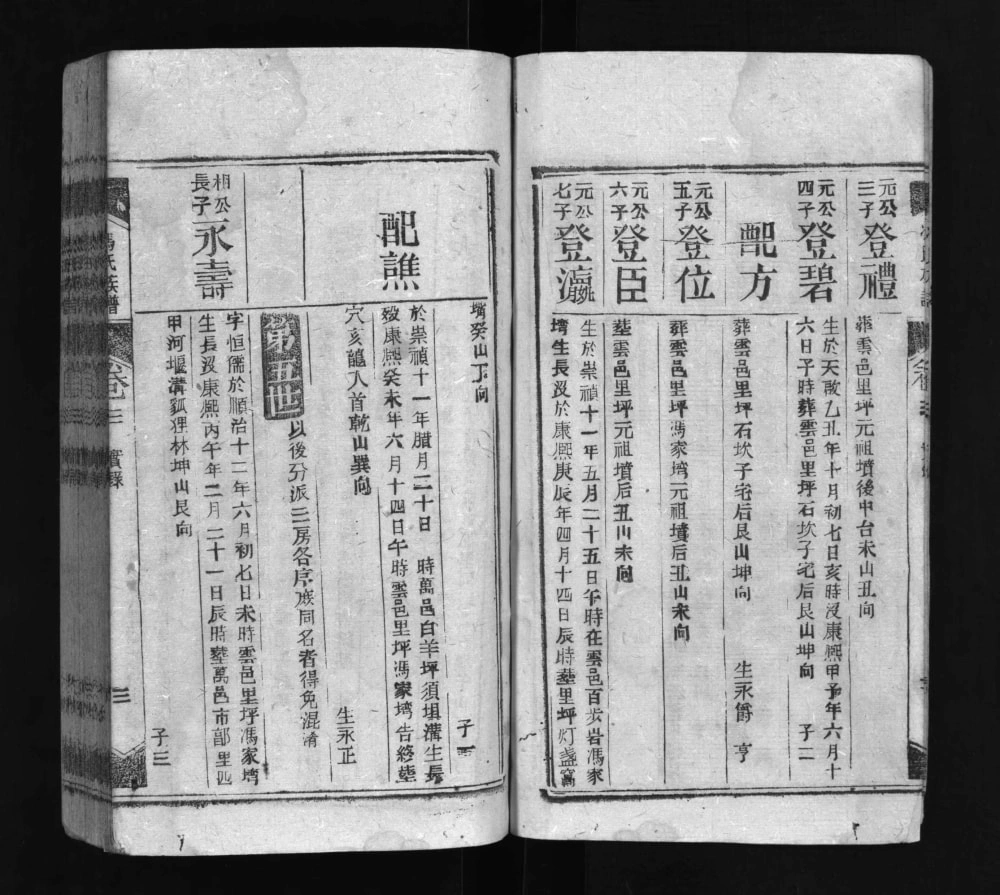 元公三子登禮
葬雲邑里坪元祖墳後中台未山丑向
元公四子登碧
生於天啟乙丑年十月初七日亥時沒康熈甲子年六月十
六日子時葬雲邑里坪石坎子宅后艮山坤向 子二
配方
葬雲邑里坪石坎子宅后艮山坤向 生永爵 亨
元公五子登位
葬雲邑里坪馮家塆元祖墳后丑山未向
元公六子登臣
塟雲邑里坪元祖墳后丑山未向
元公七子登瀛
生於崇禎十一年五月二十五日午時在雲邑百步岩馮家
塆生長沒於康熈庚辰年四月十四日辰時塟里坪灯盞窩
塆癸山丁向 子一
配譙
於崇禎十一年腊月二十日 時萬邑白羊坪須垻溝生長
歿康熈癸未年六月十四日午時雲邑里坪馮家塆告終塟
穴亥龍入首乾山巽向 生永正
第五世
以後分派三房各序族同名者得免混淆
相公長子永壽
字恒儒於順治十二年六月初七日未時雲邑里坪馮家塆
生長沒康熈丙午年二月二十一日辰時塟萬邑市郡里四
甲河堰溝狐狸林坤山艮向 子三
馮氏族譜
卷三 實錄
三